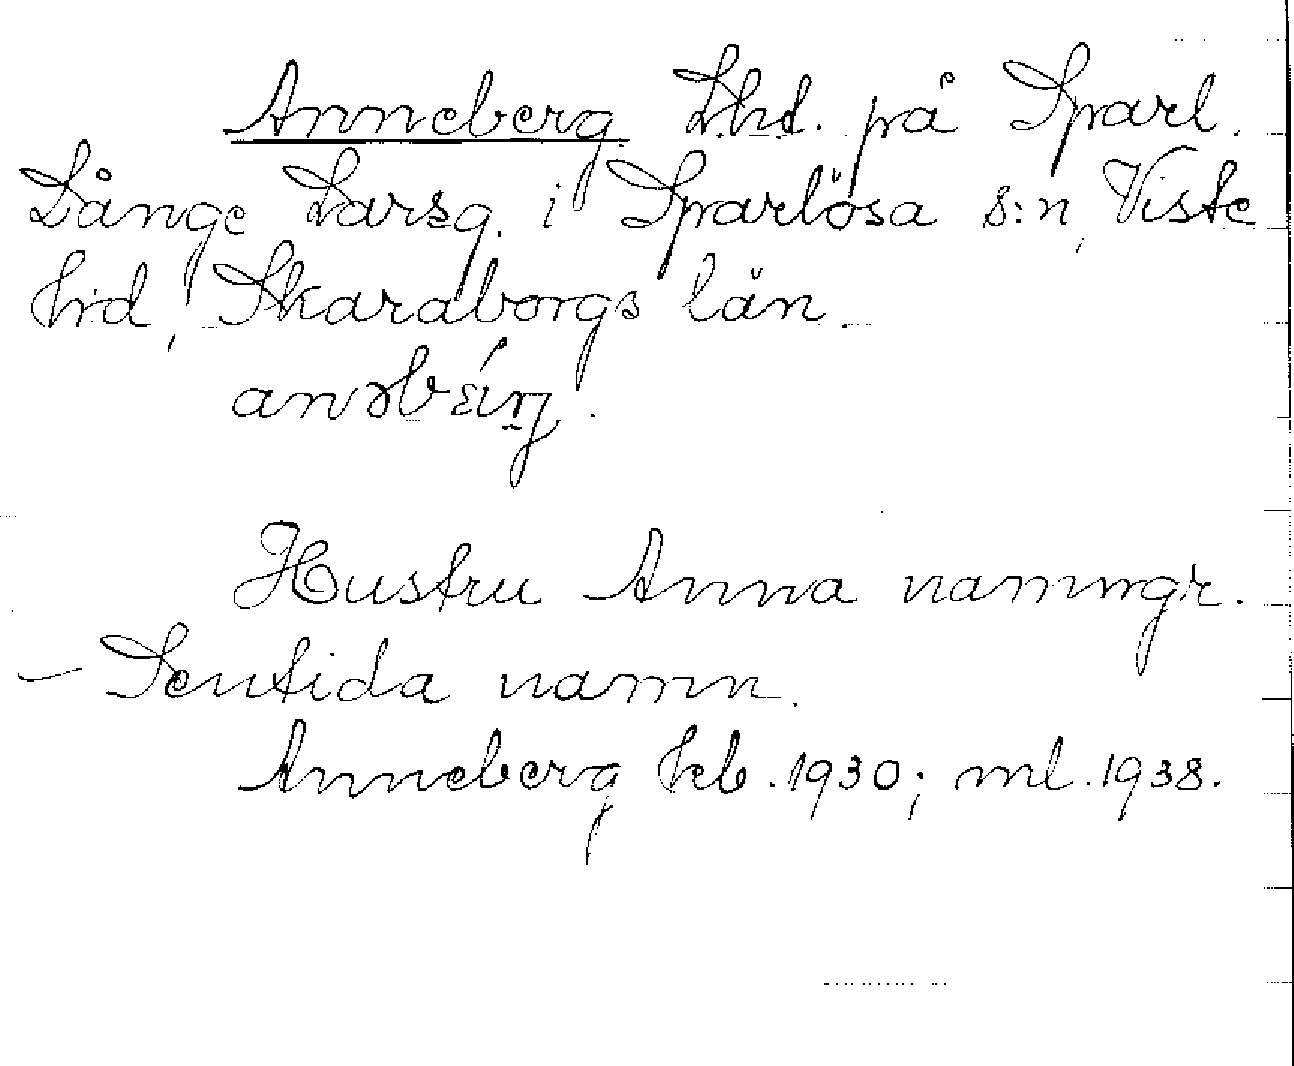 Anneberg Lhd. på Sparl.
Långe Larsg. i Sparlösa s:n, Viste
hrd, Skaraborgs län.
anəbǽrj.
Hustru Anna namngr.
— Sentida namn.
Anneberg hcb. 1930; ml. 1938.